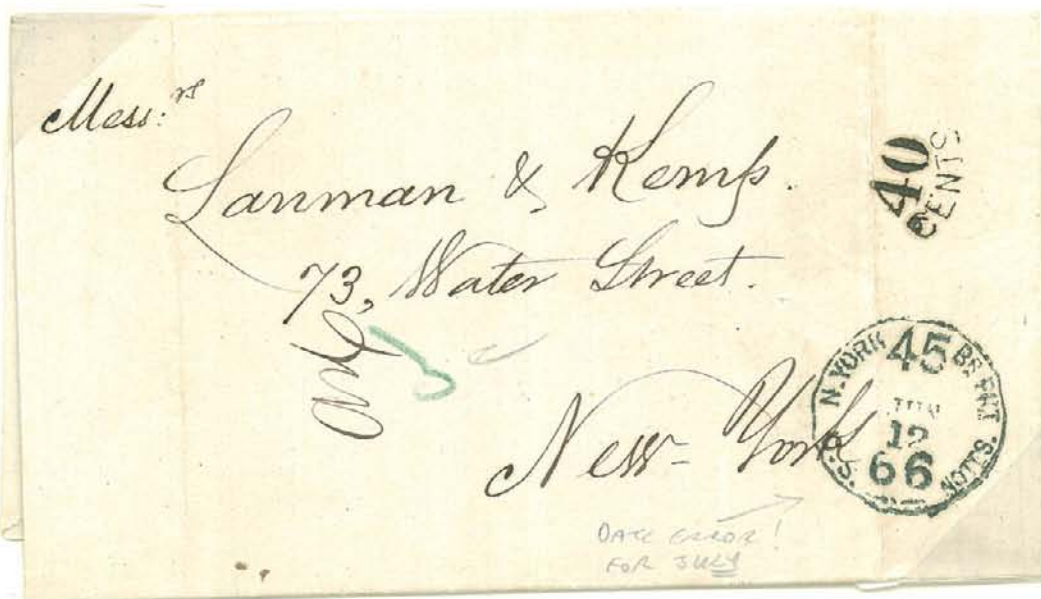 Mess:rs
Lanman & Kemp.
73, Water Street.
New-York
40
CENTS
N. YORK 45 BR. PKT.
JUN
12
66
U.S. NOTES.
DATE ERROR!
FOR JULY